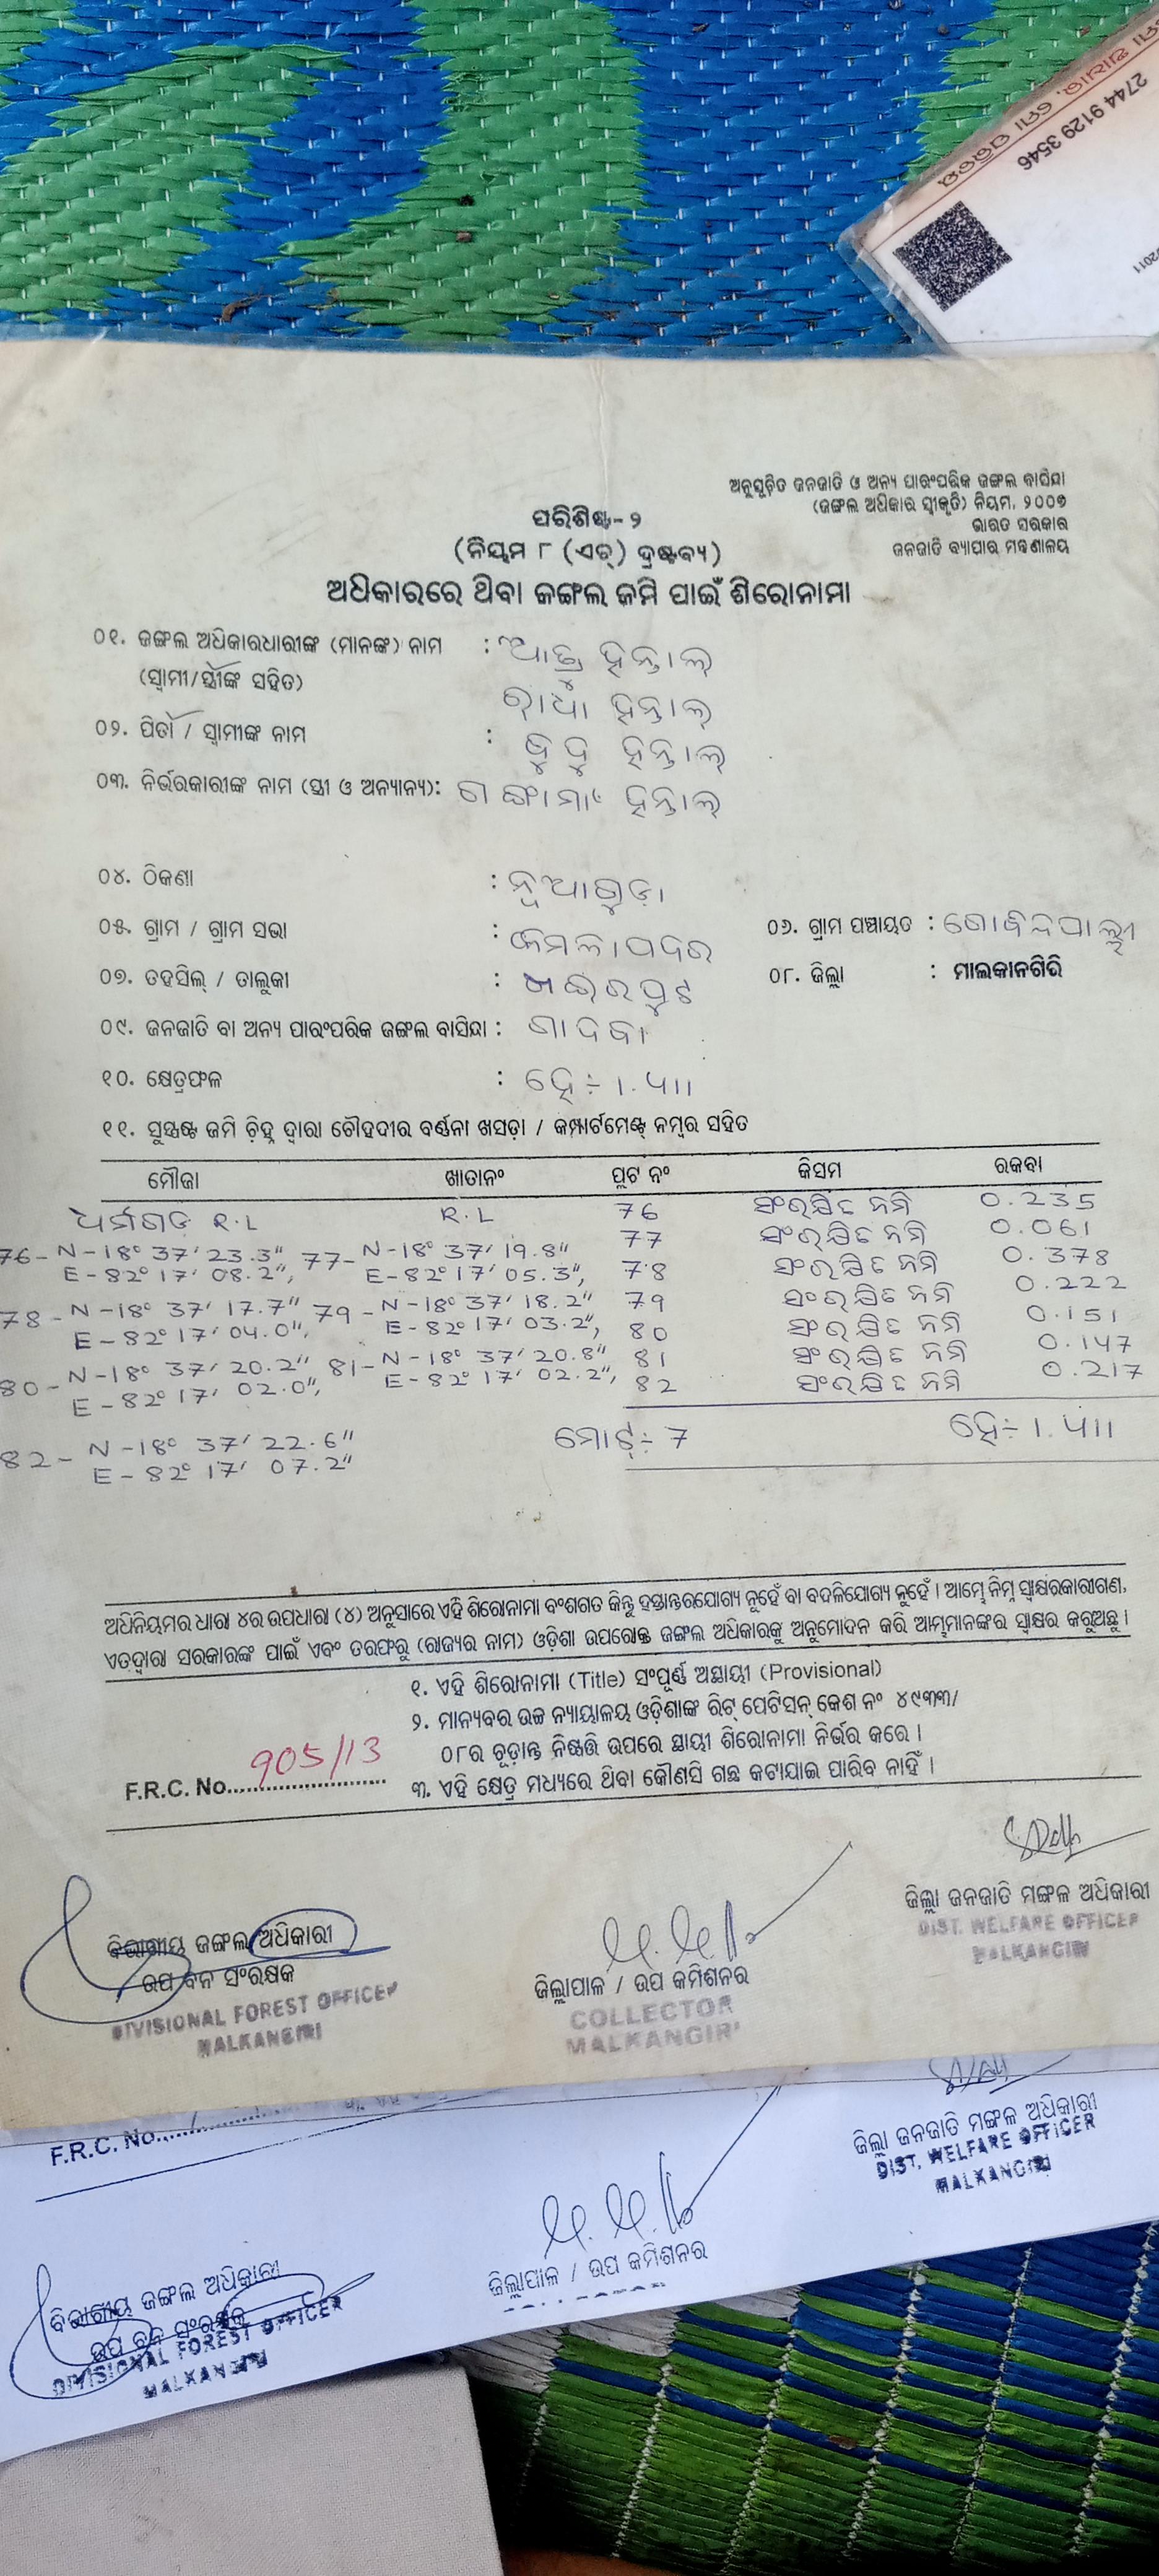 2744 9129 3546
ଅନୁସୂଚିତ ଜନଜାତି ଓ ଅନ୍ୟ ପାରଂପରିକ ଜଙ୍ଗଲ ବାସିନ୍ଦା
(ଜଙ୍ଗଲ ଅଧିକାର ସ୍ୱୀକୃତି) ନିୟମ, ୨୦୦୭
ଭାରତ ସରକାର
ଜନଜାତି ବ୍ୟାପାର ମନ୍ତ୍ରଣାଳୟ
ପରିଶିଷ୍ଟ- ୨
(ନିୟମ ୮ (ଏଚ୍) ଦ୍ରଷ୍ଟବ୍ୟ)
ଅଧିକାରରେ ଥିବା ଜଙ୍ଗଲ ଜମି ପାଇଁ ଶିରୋନାମା
୦୧. ଜଙ୍ଗଲ ଅଧିକାରଧାରୀଙ୍କ (ମାନଙ୍କ) ନାମ : ହନ୍ତାଲ୍
(ସ୍ୱାମୀ/ସ୍ତ୍ରୀଙ୍କ ସହିତ) ରାଧା ହନ୍ତାଲ୍
୦୨. ପିତା / ସ୍ୱାମୀଙ୍କ ନାମ : ହନ୍ତାଲ୍
୦୩. ନିର୍ଭରକାରୀଙ୍କ ନାମ (ସ୍ତ୍ରୀ ଓ ଅନ୍ୟାନ୍ୟ): ହନ୍ତାଲ୍
୦୪. ଠିକଣା : ନୂଆଗୁଡ଼ା
୦୫. ଗ୍ରାମ / ଗ୍ରାମ ସଭା : କମଳାପଦର ୦୬. ଗ୍ରାମ ପଞ୍ଚାୟତ : ଗୋବିନ୍ଦପାଲ୍ଲୀ
୦୭. ତହସିଲ୍ / ତାଲୁକା : ଖଇରପୁଟ ୦୮. ଜିଲ୍ଲା : ମାଲକାନଗିରି
୦୯. ଜନଜାତି ବା ଅନ୍ୟ ପାରଂପରିକ ଜଙ୍ଗଲ ବାସିନ୍ଦା : ଗାଦବା
୧୦. କ୍ଷେତ୍ରଫଳ : ହେ÷ ୧.୪୧୧
୧୧. ସୁସ୍ପଷ୍ଟ ଜମି ଚିହ୍ନ ଦ୍ୱାରା ଚୌହଦୀର ବର୍ଣ୍ଣନା ଖସଡ଼ା / କମ୍ପାର୍ଟମେଣ୍ଟ୍ ନମ୍ବର ସହିତ
ମୌଜା ଖାତାନଂ ପ୍ଲଟ ନଂ କିସମ ରକବା
ଧର୍ମଗଡ R.L R.L 76 ସଂରକ୍ଷିତ ଜମି 0.235
77 ସଂରକ୍ଷିତ ଜମି 0.061
76- N-18° 37' 23.3" 77- N-18° 37' 19.8"
E-82° 17' 08.2", E-82° 17' 05.3", 78 ସଂରକ୍ଷିତ ଜମି 0.378
78- N-18° 37' 17.7" 79- N-18° 37' 18.2" 79 ସଂରକ୍ଷିତ ଜମି 0.222
E-82° 17' 04.0", E-82° 17' 03.2", 80 ସଂରକ୍ଷିତ ଜମି 0.151
80- N-18° 37' 20.2" 81- N-18° 37' 20.8" 81 ସଂରକ୍ଷିତ ଜମି 0.147
E-82° 17' 02.0", E-82° 17' 02.2", 82 ସଂରକ୍ଷିତ ଜମି 0.217
82- N-18° 37' 22.6" ମୋଟ୍÷ 7 ହେ÷ ୧.୪୧୧
E-82° 17' 07.2"
ଅଧିନିୟମର ଧାରା ୪ର ଉପଧାରା (୪) ଅନୁସାରେ ଏହି ଶିରୋନାମା ବଂଶଗତ କିନ୍ତୁ ହସ୍ତାନ୍ତରଯୋଗ୍ୟ ନୁହେଁ ବା ବଦଳିଯୋଗ୍ୟ ନୁହେଁ । ଆମ୍ଭେ ନିମ୍ନ ସ୍ୱାକ୍ଷରକାରୀଗଣ,
ଏତଦ୍ୱାରା ସରକାରଙ୍କ ପାଇଁ ଏବଂ ତରଫରୁ (ରାଜ୍ୟର ନାମ) ଓଡ଼ିଶା ଉପରୋକ୍ତ ଜଙ୍ଗଲ ଅଧିକାରକୁ ଅନୁମୋଦନ କରି ଆମ୍ଭମାନଙ୍କର ସ୍ୱାକ୍ଷର କରୁଅଛୁ ।
୧. ଏହି ଶିରୋନାମା (Title) ସଂପୂର୍ଣ୍ଣ ଅସ୍ଥାୟୀ (Provisional)
୨. ମାନ୍ୟବର ଉଚ୍ଚ ନ୍ୟାୟାଳୟ ଓଡ଼ିଶାଙ୍କ ରିଟ୍ ପେଟିସନ୍ କେଶ ନଂ ୪୯୩୩/
୦୮ର ଚୂଡ଼ାନ୍ତ ନିଷ୍ପତ୍ତି ଉପରେ ସ୍ଥାୟୀ ଶିରୋନାମା ନିର୍ଭର କରେ ।
F.R.C. No. 905/13 ୩. ଏହି କ୍ଷେତ୍ର ମଧ୍ୟରେ ଥିବା କୌଣସି ଗଛ କଟାଯାଇ ପାରିବ ନାହିଁ ।
ବିଭାଗୀୟ ଜଙ୍ଗଲ ଅଧିକାରୀ
ଉପ ବନ ସଂରକ୍ଷକ
DIVISIONAL FOREST OFFICER
MALKANGIRI
ଜିଲ୍ଲାପାଳ / ଉପ କମିଶନର
COLLECTOR
MALKANGIRI
ଜିଲ୍ଲା ଜନଜାତି ମଙ୍ଗଳ ଅଧିକାରୀ
DIST. WELFARE OFFICER
MALKANGIRI
F.R.C. No.
ବିଭାଗୀୟ ଜଙ୍ଗଲ ଅଧିକାରୀ
ଉପ ବନ ସଂରକ୍ଷକ
DIVISIONAL FOREST OFFICER
MALKANGIRI
ଜିଲ୍ଲାପାଳ / ଉପ କମିଶନର
ଜିଲ୍ଲା ଜନଜାତି ମଙ୍ଗଳ ଅଧିକାରୀ
DIST. WELFARE OFFICER
MALKANGIRI